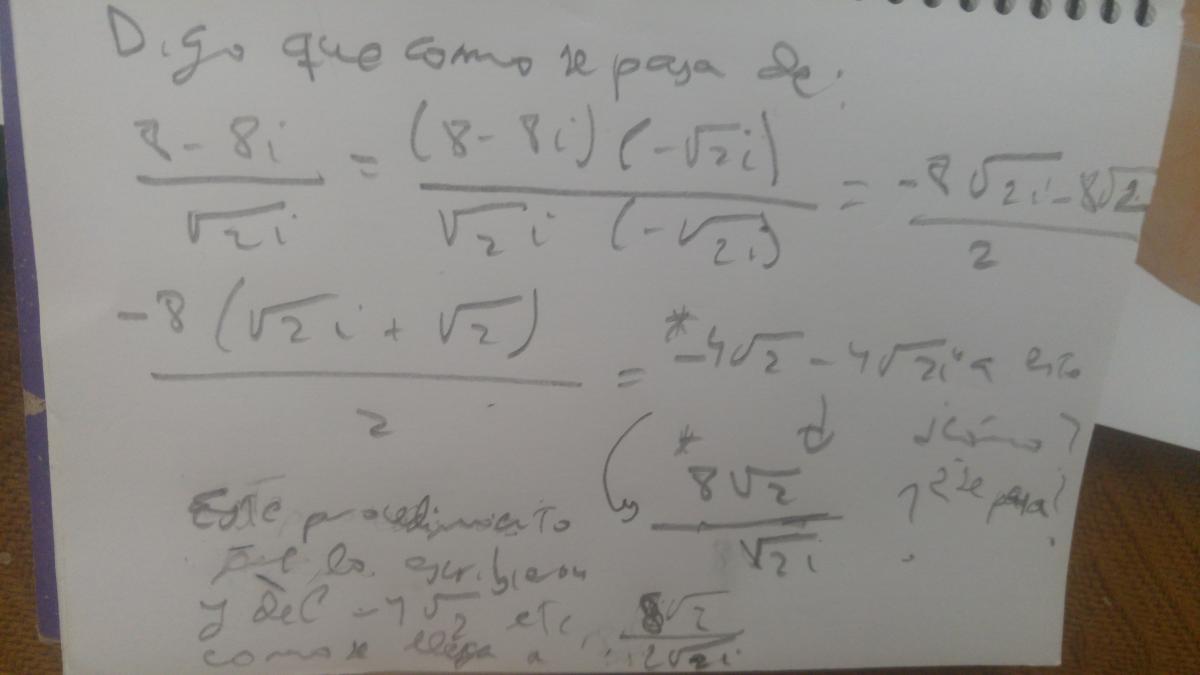 Digo que como se pasa de:
8 - 8i / √2i = (8 - 8i) (-√2i) / √2i (-√2i) = -8√2i - 8√2 / 2
-8 (√2i + √2) / 2 = * -4√2 - 4√2i a esto
* 8√2 / √2i ¿cómo se pasa?
Este procedimiento
me lo escribieron
y del -4√2 etc,
como se llega a 8√2 / √2i